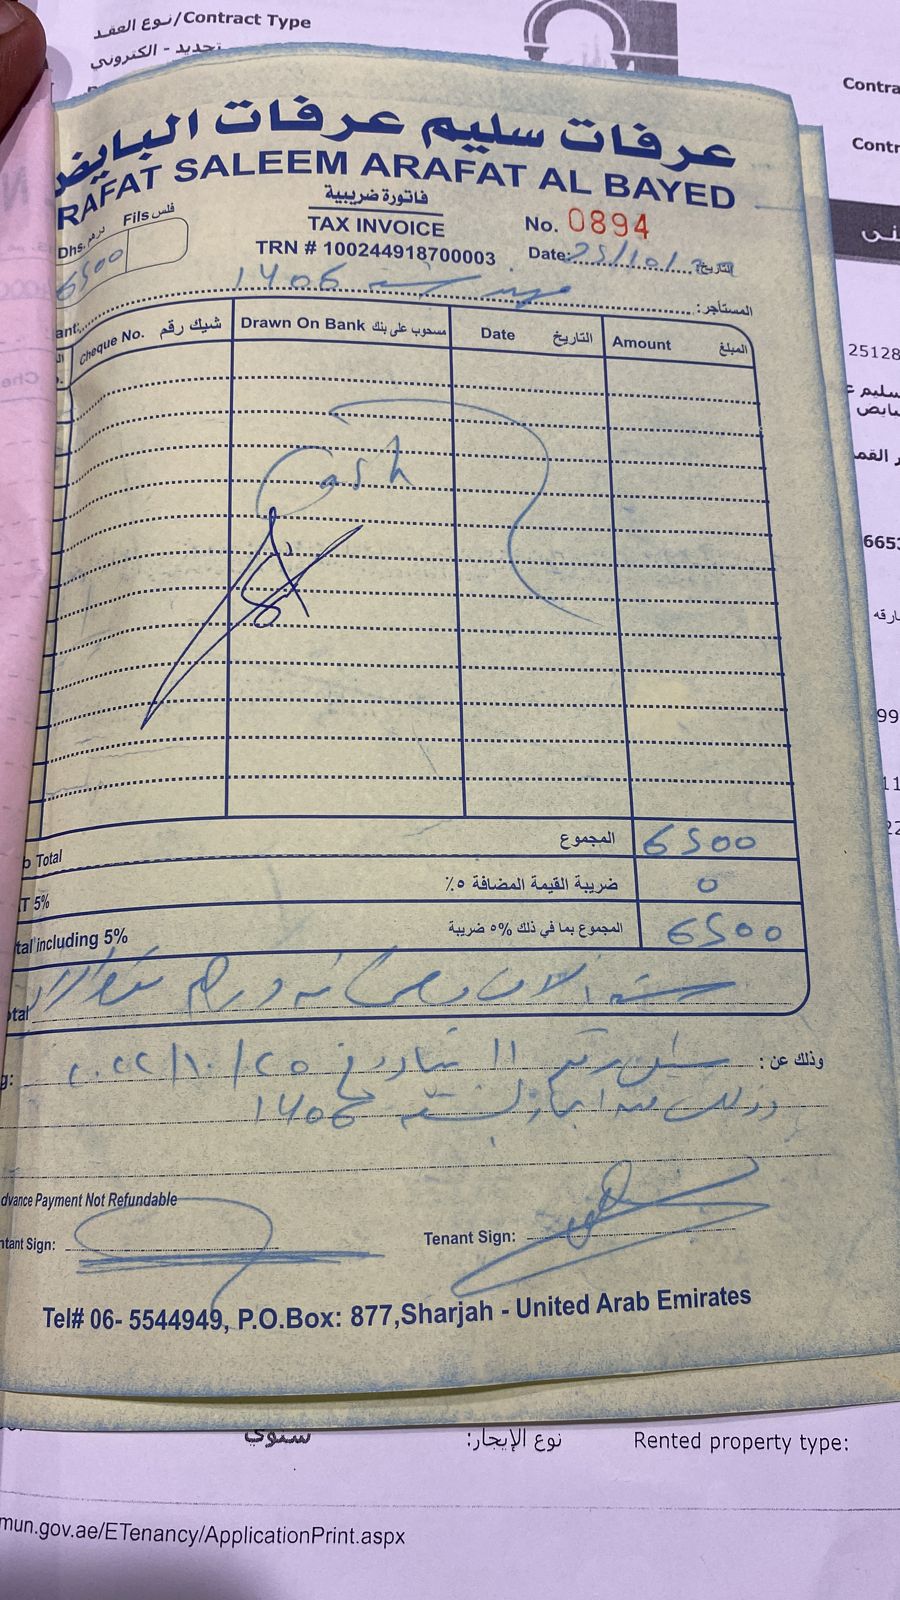 نوع العقد/Contract Type
تجديد - الكتروني
Contra
Contr
عرفات سليم عرفات البايض
RAFAT SALEEM ARAFAT AL BAYED
فاتورة ضريبية
TAX INVOICE
No. 0894
TRN # 100244918700003
Date: 25/10/ التاريخ:
Dhs. درهم Fils فلس
6500
المستأجر: 1706
ant:
Cheque No. شيك رقم Drawn On Bank مسحوب على بنك Date التاريخ Amount المبلغ
Cash
b Total المجموع 6500
T 5% ضريبة القيمة المضافة ٥٪ 0
tal including 5% المجموع بما في ذلك ٥% ضريبة 6500
otal ستة آلاف وخمسمائة درهم
g: رقم 11 بتاريخ ٢٠٢٢/١٠/٢٥ وذلك عن:
وذلك 1706
dvance Payment Not Refundable
ntant Sign: Tenant Sign:
Tel# 06- 5544949, P.O.Box: 877,Sharjah - United Arab Emirates
25128
سليم ع
بايض
ر القم
6653
ارقه
99
11
22
سنوي نوع الإيجار: Rented property type:
mun.gov.ae/ETenancy/ApplicationPrint.aspx